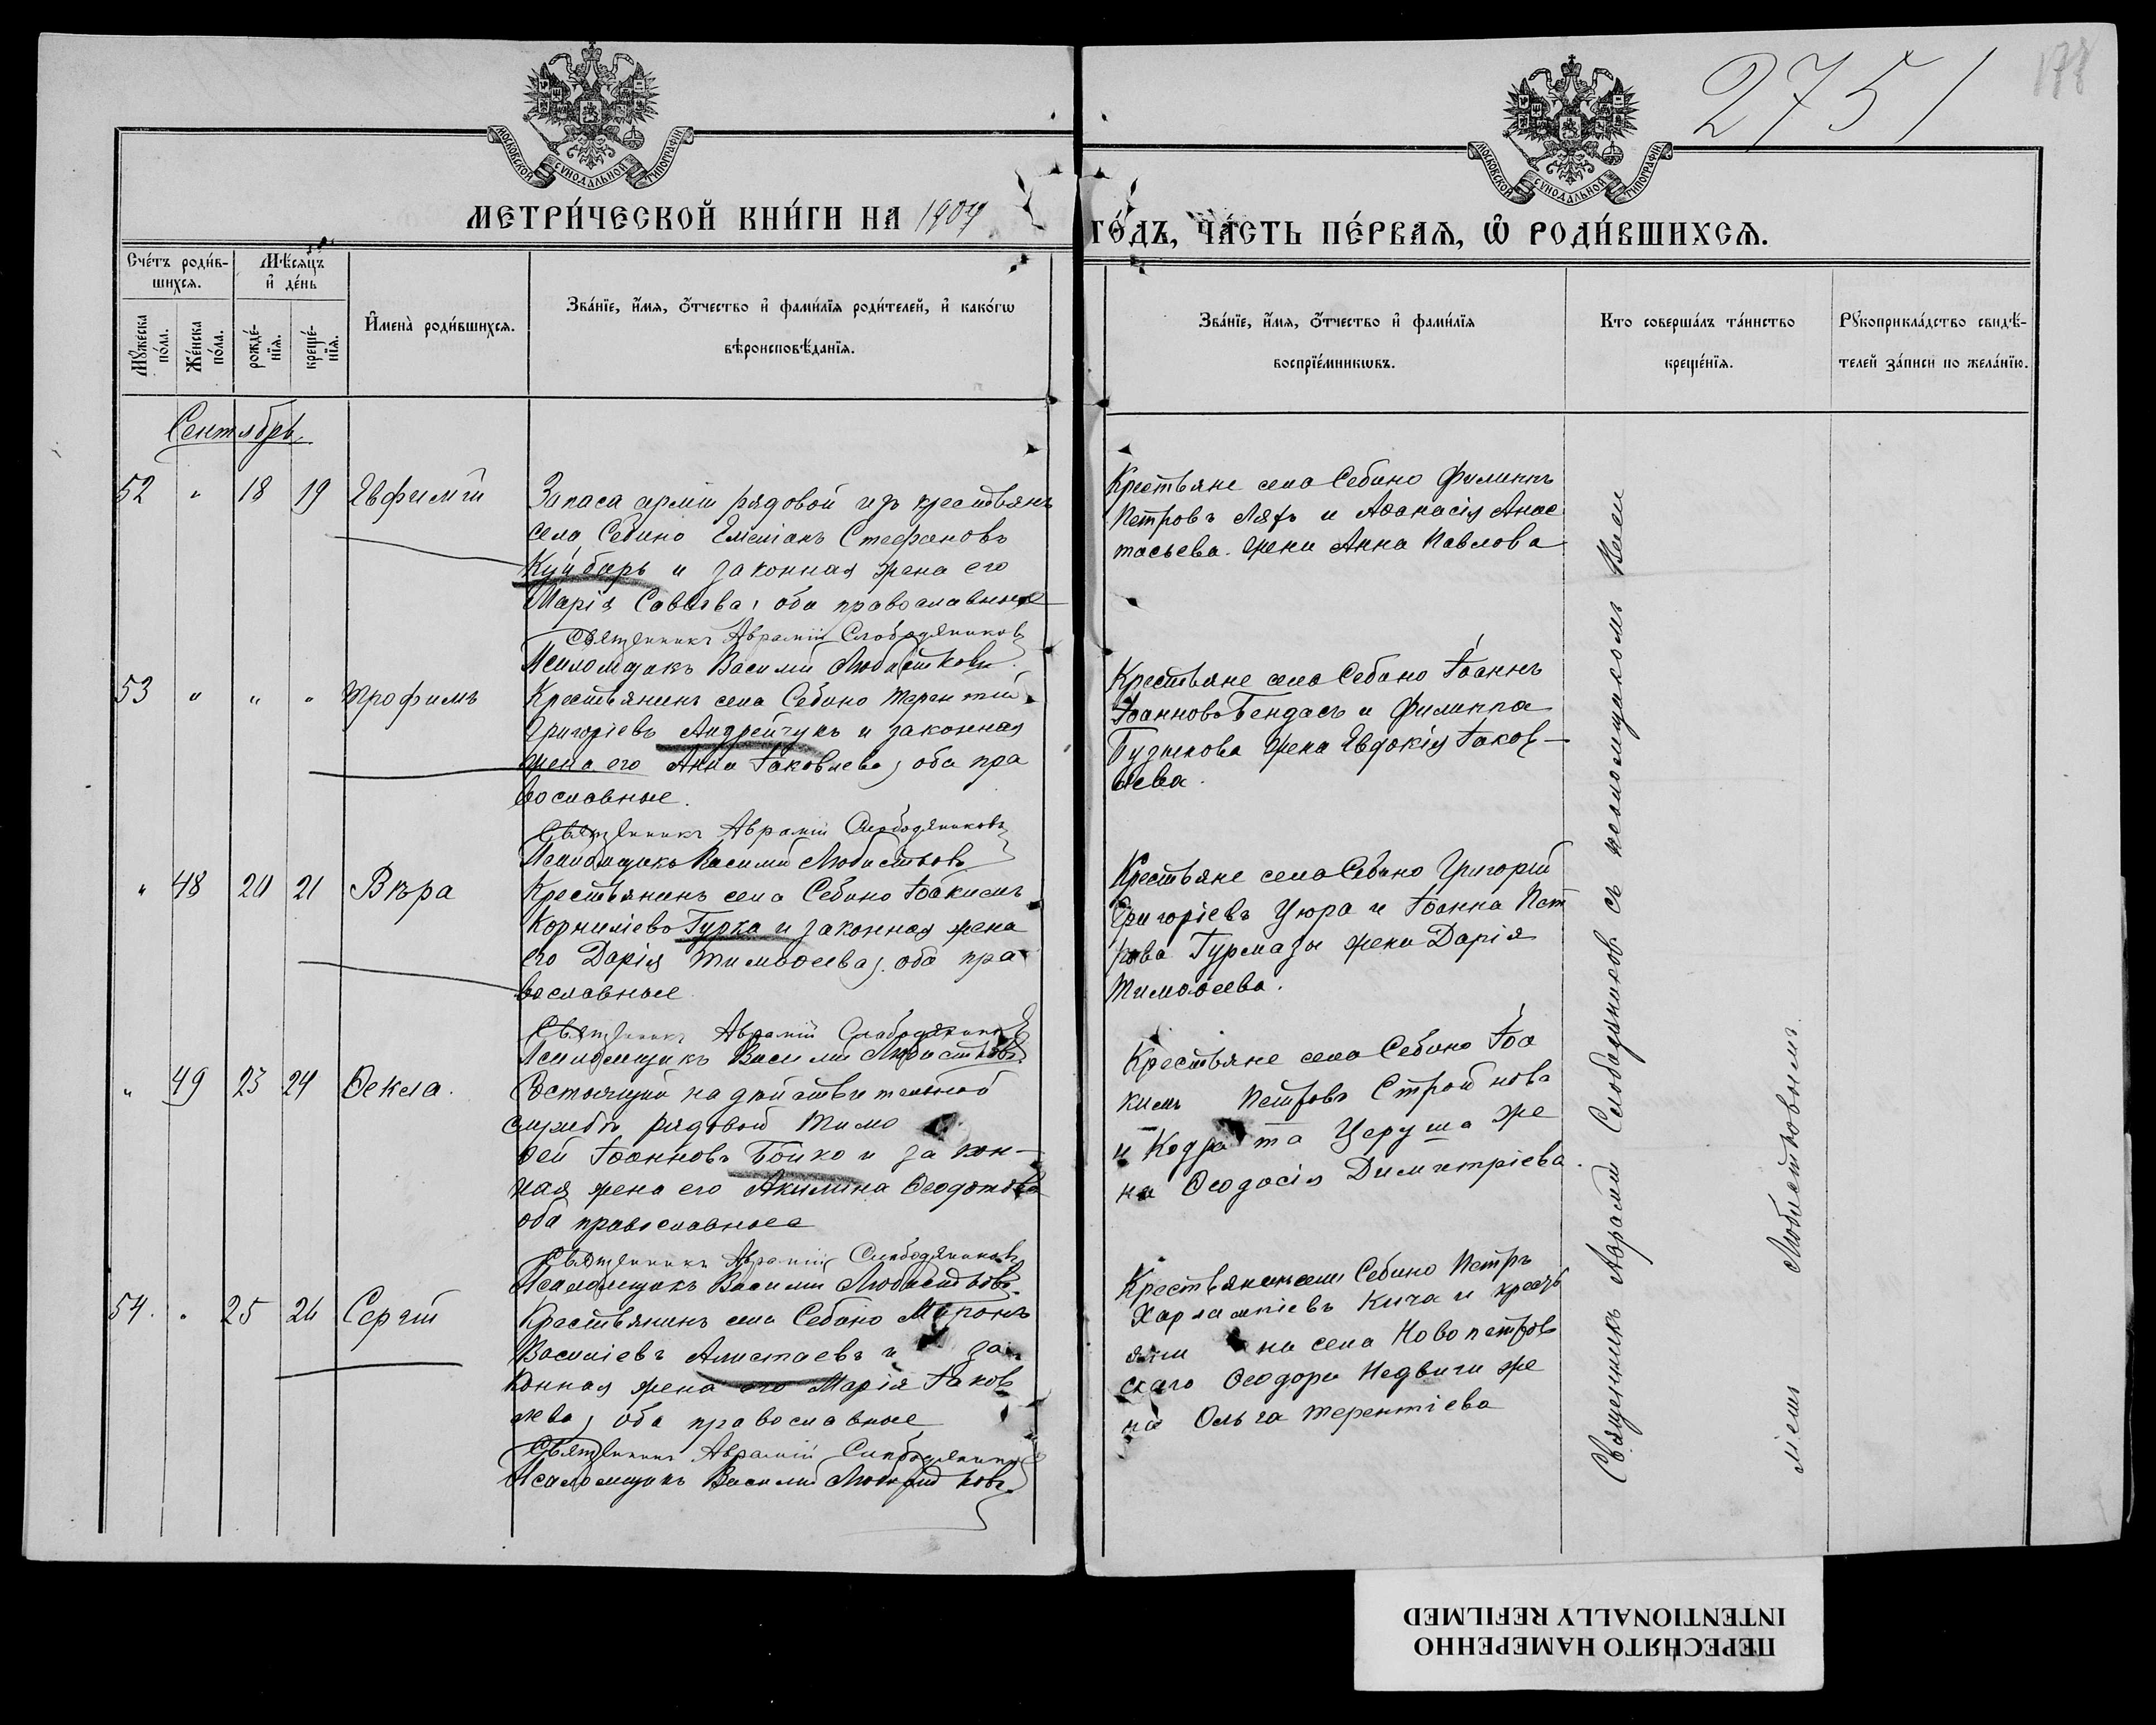 2751
178
МОСКОВСКОЙ СѴНОДАЛЬНОЙ ТИПОГРАФІИ
МОСКОВСКОЙ СѴНОДАЛЬНОЙ ТИПОГРАФІИ
МЕТРИ́ЧЕСКОЙ КНИ́ГИ НА 1904
ГО́ДЪ, ЧА́СТЬ ПЕ́РВАѦ, Ѡ҆ РОДИ́ВШИХСѦ.
Сче́тъ роди́в-
шихсѧ.
Мѣ́сѧцъ
и҆ де́нь
Мꙋ́жеска
по́ла.
Же́нска
по́ла.
рожде́-
нїѧ.
креще́-
нїѧ.
И҆мена̀ роди́вшихсѧ.
Зва́нїе, и҆́мѧ, ѻ҆́тчество и҆ фами́лїѧ роди́телей, и҆ како́гѡ
вѣроисповѣ́данїѧ.
Зва́нїе, и҆́мѧ, ѻ҆́тчество и҆ фами́лїѧ
воспрїе́мникѡвъ.
Кто соверша́лъ та́инство
креще́нїѧ.
Рꙋкоприкла́дство свидѣ́-
телей за́писи по жела́нїю.
Сентябрь
52 " 18 19 Евфимій
Запаса арміи рядовой изъ крестьянъ
села Себино Емеліанъ Стефановъ
Куцбарь и законная жена его
Марія Саввева, оба православные
Священникъ Аврамій Слободяниковъ
Псаломщикъ Василій Любистковъ
Крестьяне села Себино Филиппъ
Петровъ Ляхъ и Аѳанасія Анас
тасьева жена Анна Павлова
53 " " " Трофимъ
Крестьянинъ села Себино Терентій
Григоріевъ Андрейчукъ и законная
жена его Анна Іаковлева, оба пра
вославные.
Священникъ Аврамій Слободяниковъ
Псаломщикъ Василій Любистковъ
Крестьяне села Себино Іоаннъ
Іоанновъ Бендасъ и Филиппа
Будникова жена Евдокія Іаков-
лева.
" 48 20 21 Вѣра
Крестьянинъ села Себино Іоакимъ
Корниліевъ Гурка и законная жена
его Дарія Тимоѳеева, оба пра
вославные
Священникъ Аврамій Слободяниковъ
Псаломщикъ Василій Любистковъ
Крестьяне села Себино Григорій
Григоріевъ Цюра и Іоанна Пет
рова Гурмазы жена Дарія
Тимоѳеева.
" 49 23 24 Ѳекла.
Состоящій на дѣйствительной
службѣ рядовой Тимо
ѳей Іоанновъ Бойко и закон-
ная жена его Акилина Ѳеодотова
оба православные
Священникъ Аврамій Слободяниковъ
Псаломщикъ Василій Любистковъ
Крестьяне села Себино Іоа
кимъ Петровъ Стройнова
и Кодрата Церуша же
на Ѳеодосія Димитріева.
54. " 25 26 Сергій
Крестьянинъ села Себино Миронъ
Василіевъ Алистаевъ и за
конная жена его Марія Іаков
лева, оба православные
Священникъ Аврамій Слободяниковъ
Псаломщикъ Василій Любистковъ
Крестьянинъ села Себино Петръ
Харлампіевъ Кича и кресть
яни на села Новопетров
скаго Ѳеодора Недвиги же
на Ольга Терентіева
Священникъ Аврамій Слободяниковъ съ псаломщикомъ Васи
ліемъ Любистковымъ.
ПЕРЕСНЯТО НАМЕРЕННО
INTENTIONALLY REFILMED